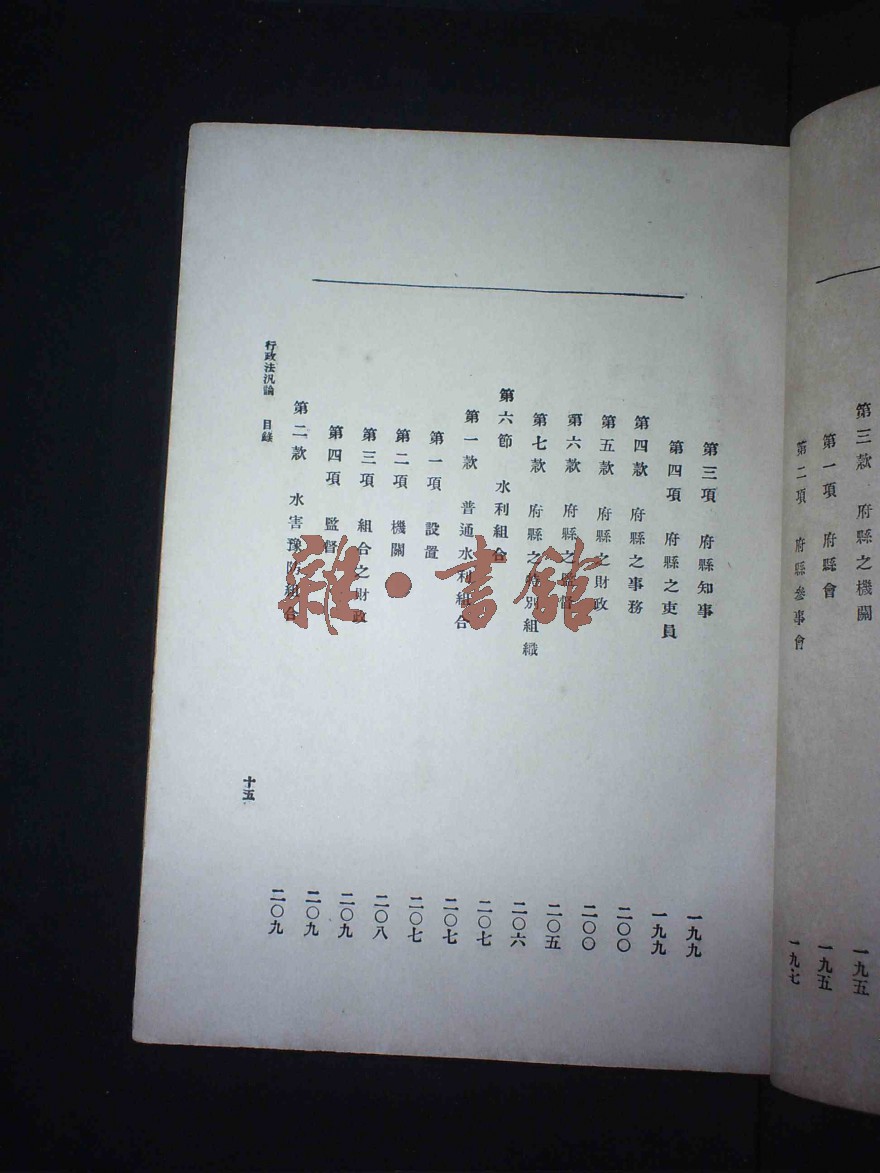 第三款 府縣之機關 一九五
第一項 府縣會 一九五
第二項 府縣參事會 一九七
第三項 府縣知事 一九九
第四項 府縣之吏員 一九九
第四款 府縣之事務 二〇〇
第五款 府縣之財政 二〇〇
第六款 府縣之監督 二〇五
第七款 府縣之特別組織 二〇六
第六節 水利組合 二〇七
第一款 普通水利組合 二〇七
第一項 設置 二〇七
第二項 機關 二〇八
第三項 組合之財政 二〇九
第四項 監督 二〇九
第二款 水害豫防組合 二〇九
行政法汎論 目錄 十五
雜·書館